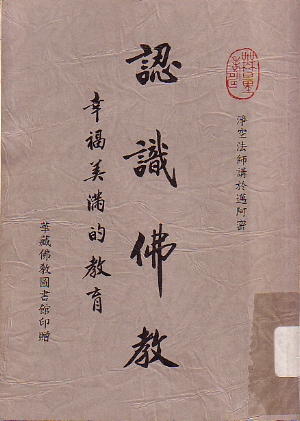 淨空法師講於邁阿密
認識佛教
幸福美滿的教育
華藏佛教圖書館印贈